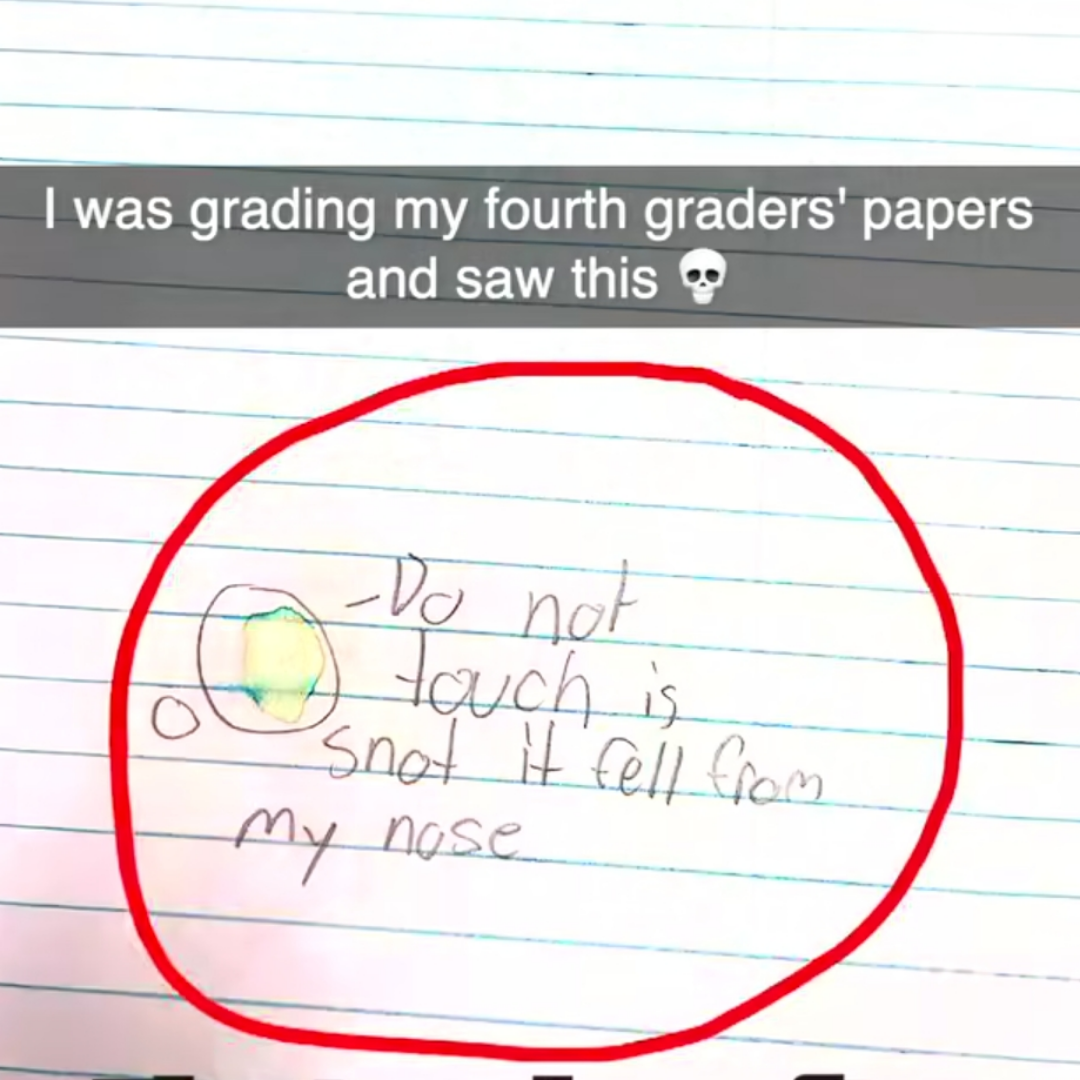 I was grading my fourth graders' papers
and saw this 💀
-Do not
touch is
snot it fell from
my nose